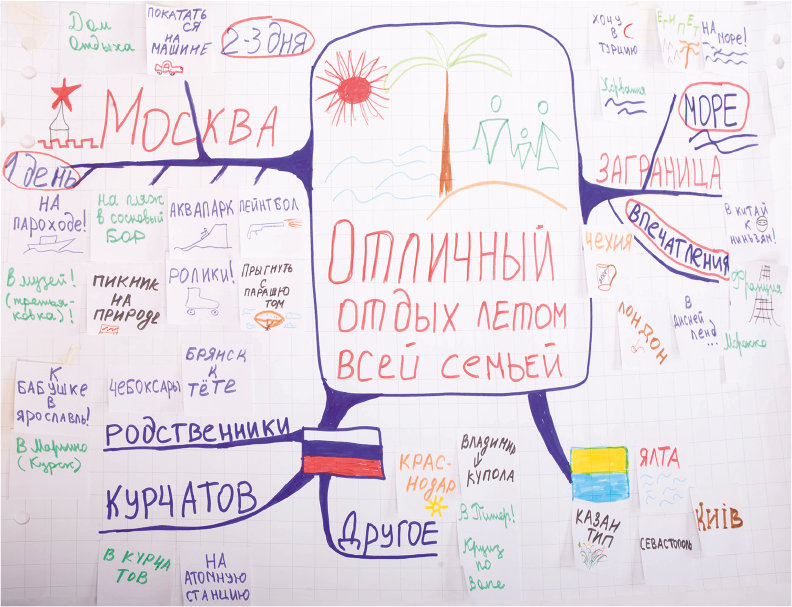 Дом
отдыха
ПОКАТАТЬ
СЯ
НА
МАШИНЕ
2-3 ДНЯ
МОСКВА
1 ДЕНЬ
НА
ПАРОХОДЕ!
НА ПЛЯЖ
В СОСНОВЫЙ
БОР
АКВАПАРК
ПЕЙНТБОЛ
В МУЗЕЙ!
(третья-
ковка)!
ПИКНИК
НА
ПРИРОДЕ
РОЛИКИ!
ПРЫГНУТЬ
С
ПАРАШЮ
ТОМ
ОТЛИЧНЫЙ
ОТДЫХ ЛЕТОМ
ВСЕЙ СЕМЬЕЙ
ХОЧУ
В
ТУРЦИЮ
ЕГИПЕТ
НА
МОРЕ!
Хорватия
МОРЕ
ЗАГРАНИЦА
ВПЕЧАТЛЕНИЯ
ЧЕХИЯ
ЛОНДОН
В
ДИСНЕЙ
ЛЕНД...
В КИТАЙ
К
НИНЬЗЯМ!
Франция
Марокко
К
БАБУШКЕ
В
ЯРОСЛАВЛЬ!
ЧЕБОКСАРЫ
БРЯНСК
К
ТЁТЕ
В Марьино
(Курск)
РОДСТВЕННИКИ
КУРЧАТОВ
В КУРЧА
ТОВ
НА
АТОМНУЮ
СТАНЦИЮ
ДРУГОЕ
КРАС-
НОДАР
ВЛАДИМИР
КУПОЛА
В Питер!
Круиз
по
Волге
ЯЛТА
КАЗАН
ТИП
СЕВАСТОПОЛЬ
КИЇВ